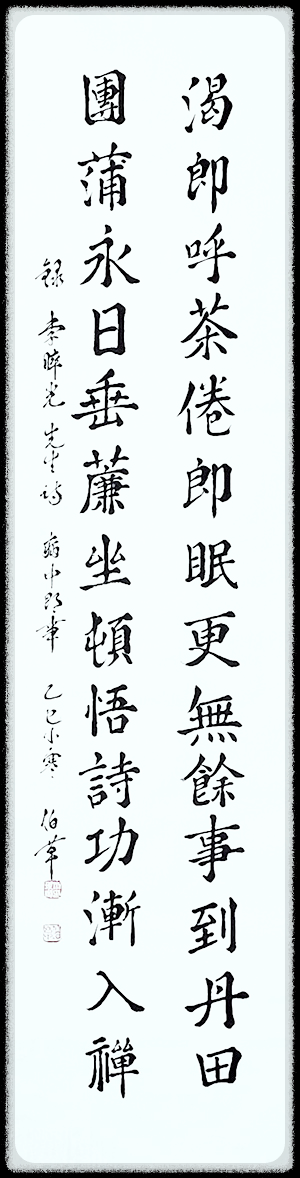 渴即呼茶倦即眠更無餘事到丹田
團蒲永日垂簾坐頓悟詩功漸入禪
錄 李晬光先生詩 病中即事 乙巳小寒 伯華